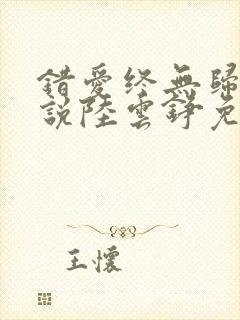 錯愛終無歸
說陸雲錚免
王懷